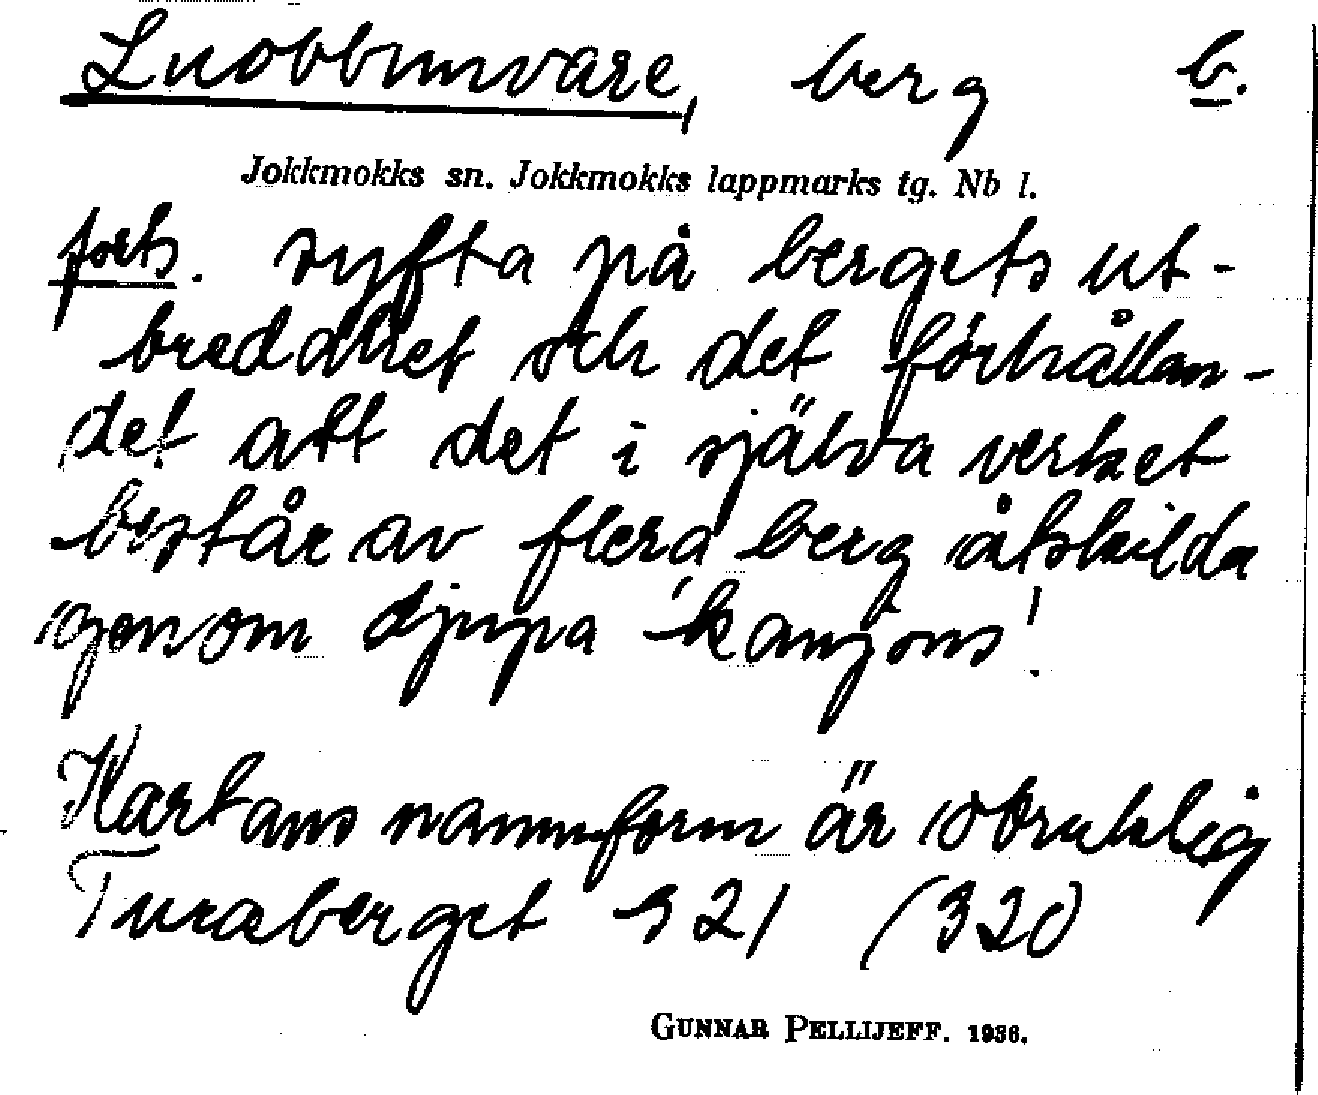 Luobbumvare, berg b.
Jokkmokks sn. Jokkmokks lappmarks tg. Nb l.
forts. syfta på bergets ut-
breddhet och det förhållan-
det att det i själva verket
består av flera berg åtskilda
genom djupa kanjons!
Kartans namnform är obruklig
Turaberget 321 (320)
GUNNAR PELLIJEFF. 1936.